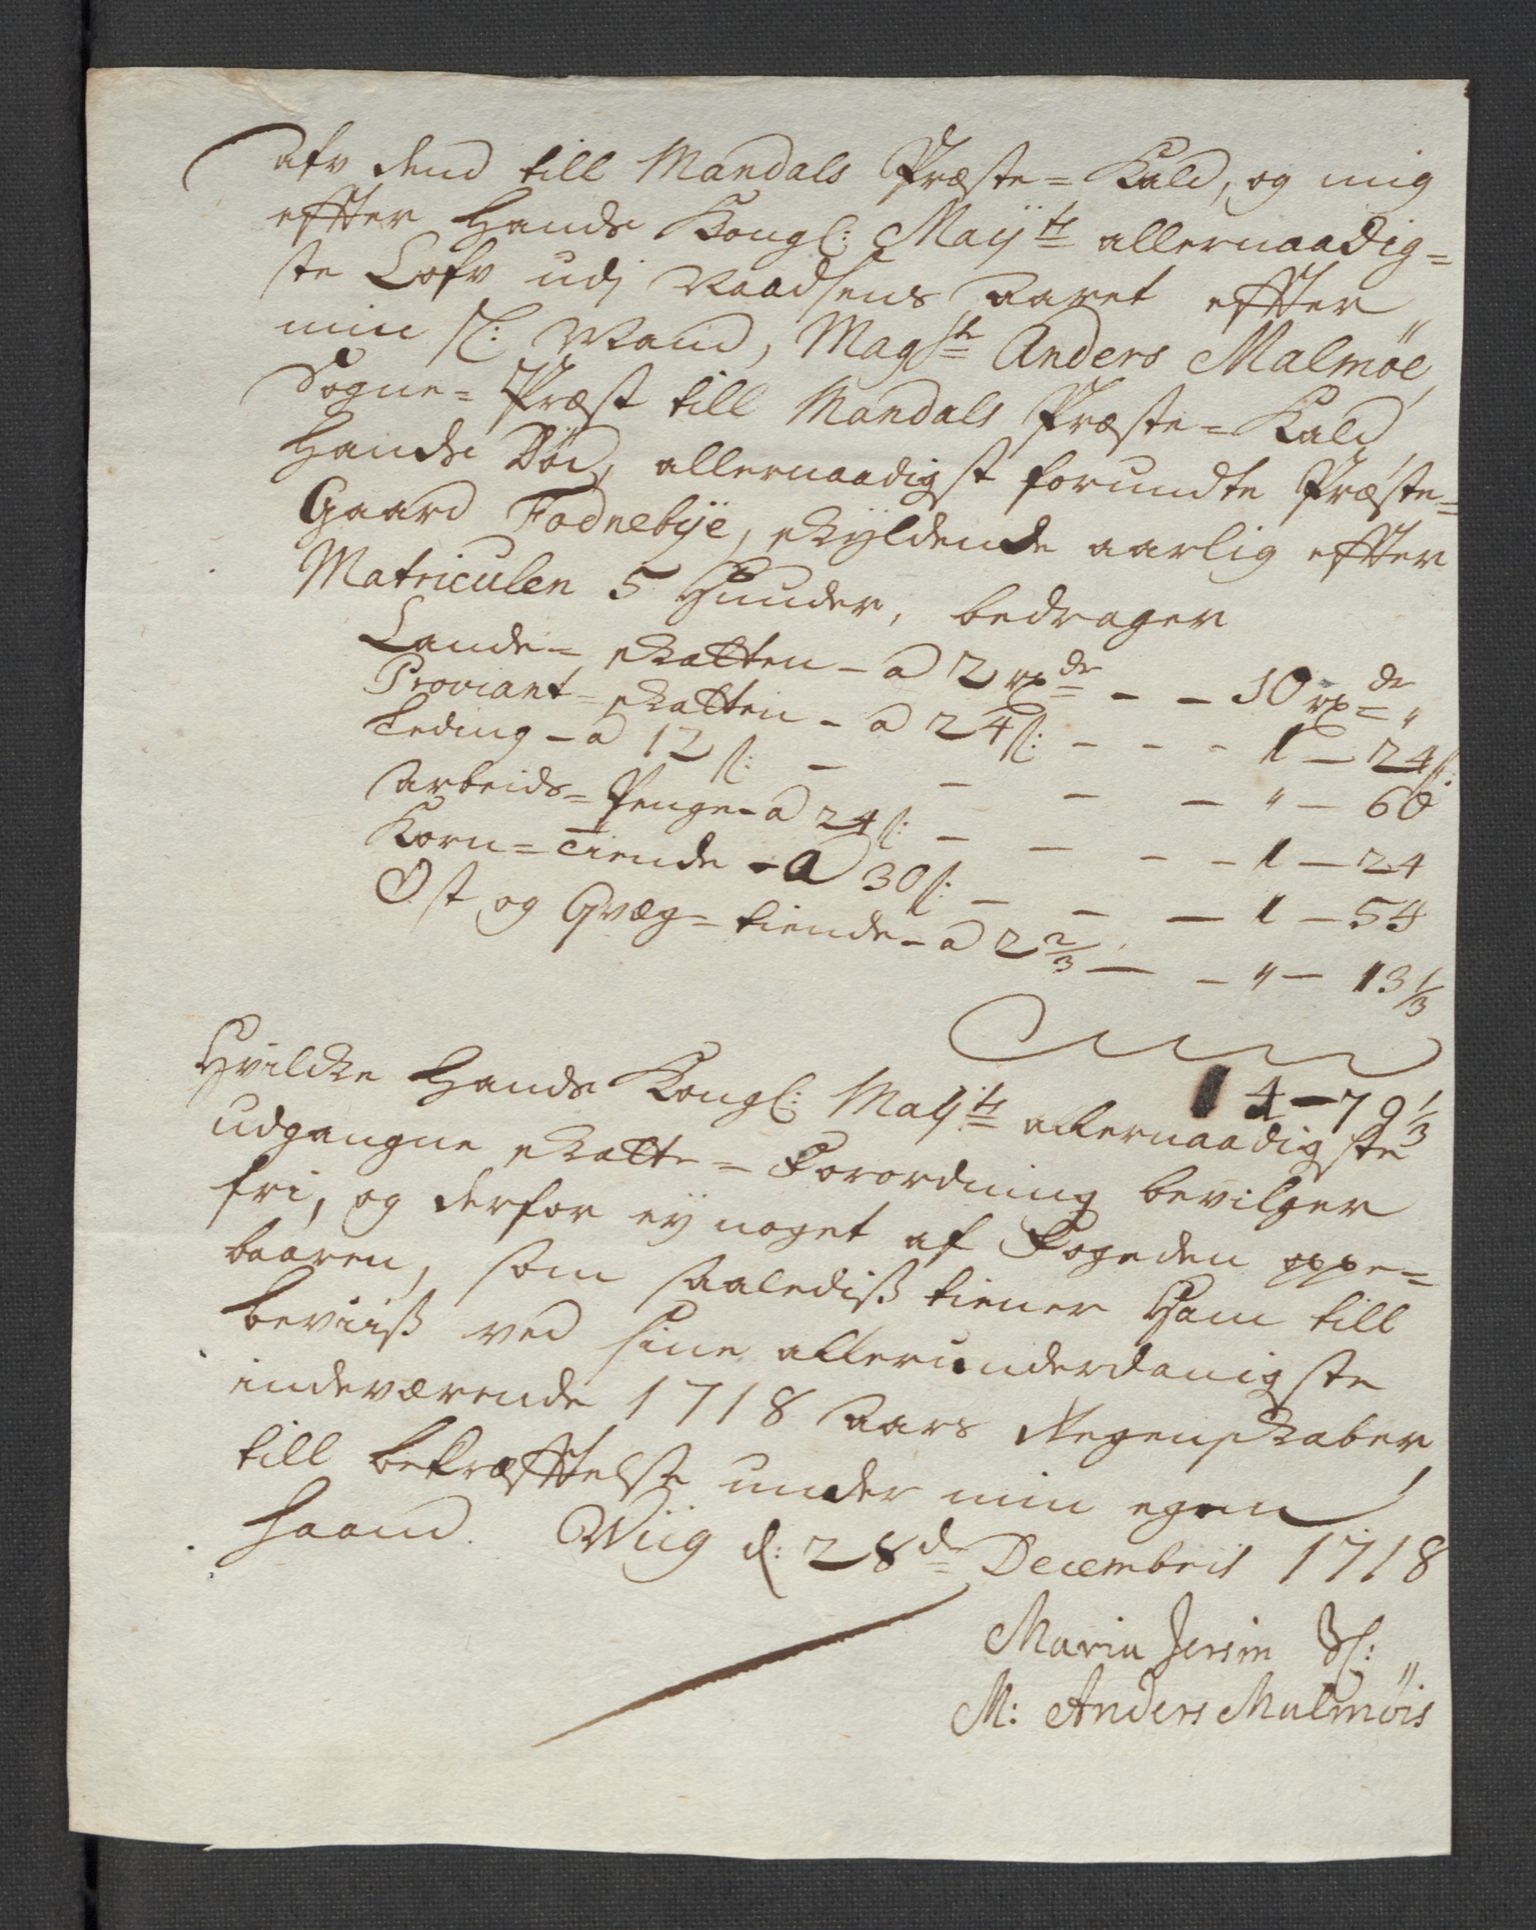 Afv dend till Mandals Præste= Kald, og mig
effter Hands Kongl: Mayts allernaadig=
ste Lofv udj Naadsens Aaret effter
min Sl: Mand, Magstr Anders Malmöe,
Sogne= Præst till Mandals Præste= Kald,
Hands Död, allernaadigst forundte Præste=
Gaard Fodnebÿe, skÿldende aarlig effter
Matriculen 5 Huuder, bedrager
Lands= skatten – a 2 rxdr – – 10 rxdr "
Proviant= skatten – a 24 s: – – – 1 – 24 s:
Leding – a 12 s: – – – – " – 60
Arbeids= Penge – a 24 s: – – – – 1 – 24
Korn= Tiende – a 30 s: – – – 1 – 54
Ost og Qvæg= tiende – a 2 2/3 – – " – 13 1/3
14 – 79 1/3
Hvilcke Hands Kongl: Mayts allernaadigste
udgangne skatte= Forordning bevilger
fri, og derfor eÿ noget af Fogeden oppe=
baaren, som saalediß tiener Ham till
beviiß ved sine allerunderdanigste
indeværende 1718 Aars Regenskaber,
till bekræfftelse under min egen
haand. Wiig d: 28de Decembris 1718
Maria Jersin Sl:
M: Anders Malmöis